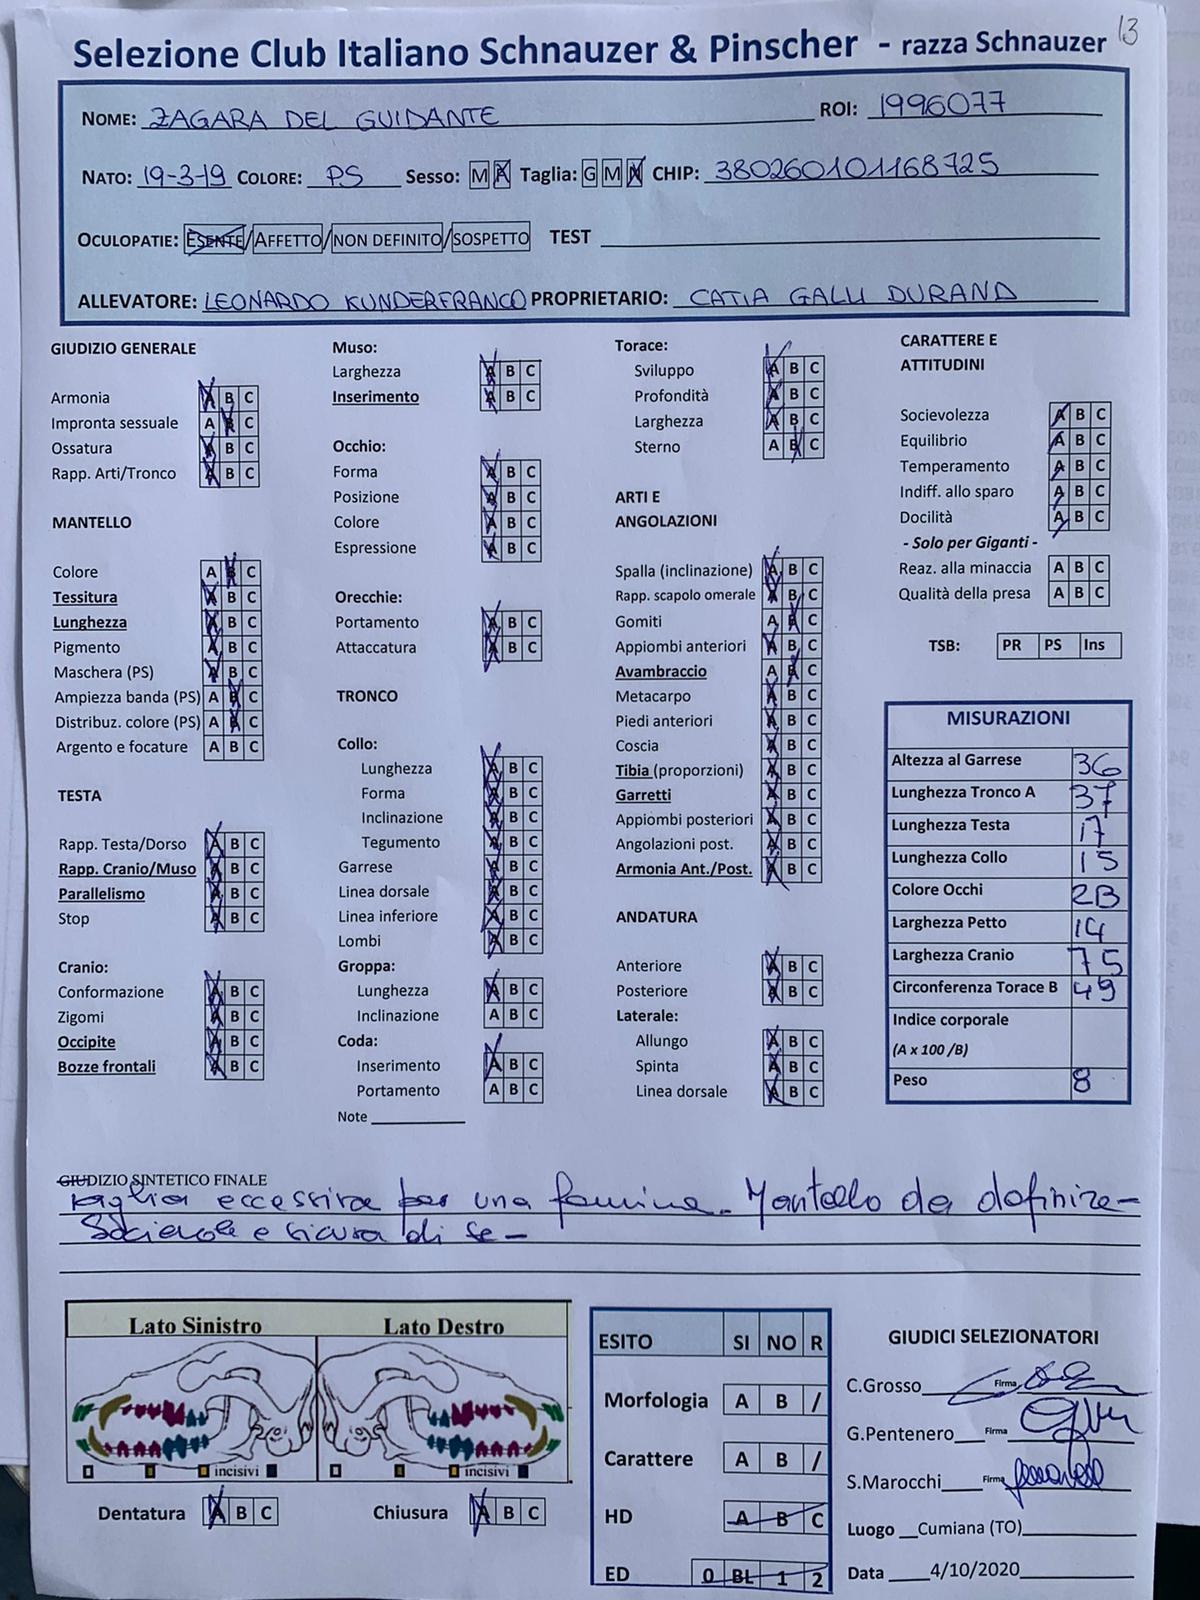 13
Selezione Club Italiano Schnauzer & Pinscher - razza Schnauzer
NOME: ZAGARA DEL GUIDANTE ROI: 1996077
NATO: 19-3-19 COLORE: PS Sesso: M Taglia: G M N CHIP: 380260101168725
OCULOPATIE: ESENTE/AFFETTO/NON DEFINITO/SOSPETTO TEST
ALLEVATORE: LEONARDO KUNDERFRANCO PROPRIETARIO: CATIA GALLI DURAND
GIUDIZIO GENERALE
Armonia A B C
Impronta sessuale A B C
Ossatura A B C
Rapp. Arti/Tronco A B C
MANTELLO
Colore A B C
Tessitura A B C
Lunghezza A B C
Pigmento A B C
Maschera (PS) A B C
Ampiezza banda (PS) A B C
Distribuz. colore (PS) A B C
Argento e focature A B C
TESTA
Rapp. Testa/Dorso A B C
Rapp. Cranio/Muso A B C
Parallelismo A B C
Stop A B C
Cranio:
Conformazione A B C
Zigomi A B C
Occipite A B C
Bozze frontali A B C
Muso:
Larghezza A B C
Inserimento A B C
Occhio:
Forma A B C
Posizione A B C
Colore A B C
Espressione A B C
Orecchie:
Portamento A B C
Attaccatura A B C
TRONCO
Collo:
Lunghezza A B C
Forma A B C
Inclinazione A B C
Tegumento A B C
Garrese A B C
Linea dorsale A B C
Linea inferiore A B C
Lombi A B C
Groppa:
Lunghezza A B C
Inclinazione A B C
Coda:
Inserimento A B C
Portamento A B C
Note
Torace:
Sviluppo A B C
Profondità A B C
Larghezza A B C
Sterno A B C
ARTI E
ANGOLAZIONI
Spalla (inclinazione) A B C
Rapp. scapolo omerale A B C
Gomiti A B C
Appiombi anteriori A B C
Avambraccio A B C
Metacarpo A B C
Piedi anteriori A B C
Coscia A B C
Tibia (proporzioni) A B C
Garretti A B C
Appiombi posteriori A B C
Angolazioni post. A B C
Armonia Ant./Post. A B C
ANDATURA
Anteriore A B C
Posteriore A B C
Laterale:
Allungo A B C
Spinta A B C
Linea dorsale A B C
CARATTERE E
ATTITUDINI
Socievolezza A B C
Equilibrio A B C
Temperamento A B C
Indiff. allo sparo A B C
Docilità A B C
- Solo per Giganti -
Reaz. alla minaccia A B C
Qualità della presa A B C
TSB: PR PS Ins
MISURAZIONI
Altezza al Garrese 36
Lunghezza Tronco A 37
Lunghezza Testa 17
Lunghezza Collo 15
Colore Occhi 2B
Larghezza Petto 14
Larghezza Cranio 75
Circonferenza Torace B 49
Indice corporale
(A x 100 /B)
Peso 8
GIUDIZIO SINTETICO FINALE
taglia eccessiva per una femmina. Mantello da definire -
Socievole e sicura di se -
Lato Sinistro Lato Destro
incisivi incisivi
Dentatura A B C Chiusura A B C
ESITO SI NO R
Morfologia A B /
Carattere A B /
HD A B C
ED 0 BL 1 2
GIUDICI SELEZIONATORI
C.Grosso Firma
G.Pentenero Firma
S.Marocchi Firma
Luogo Cumiana (TO)
Data 4/10/2020